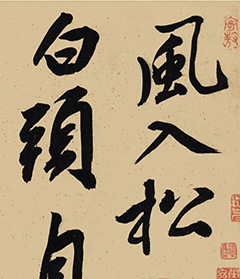 風入松
白頭自